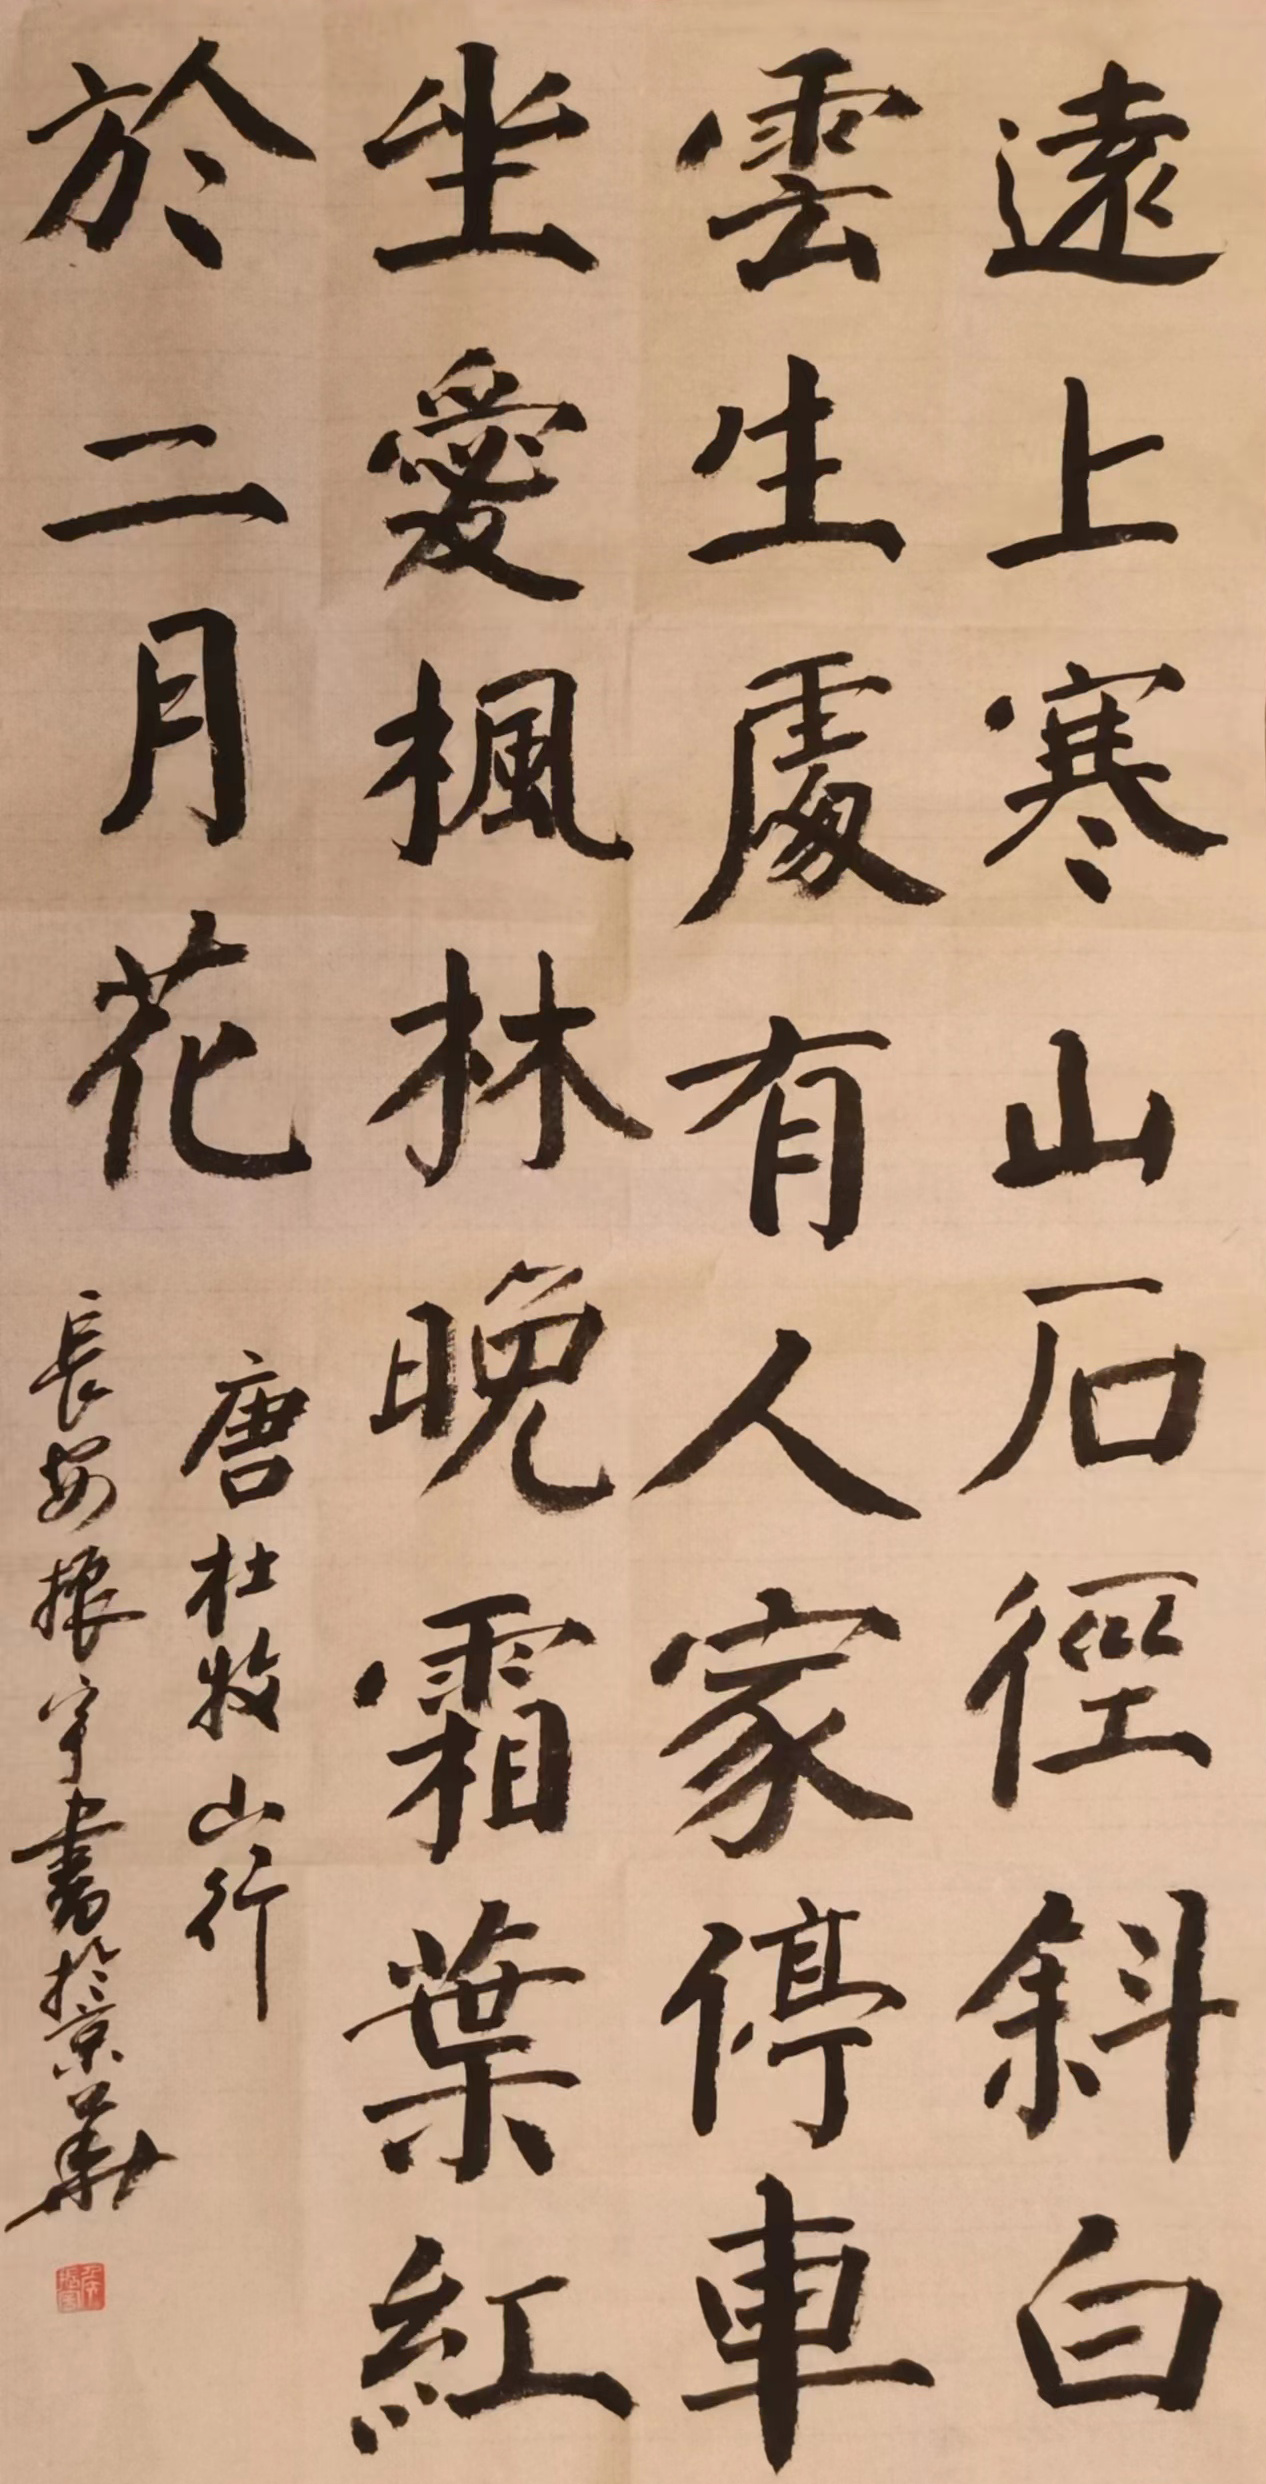 遠上寒山石徑斜白
雲生處有人家停車
坐愛楓林晚霜葉紅
於二月花
唐杜牧山行
長安振宇書於京華